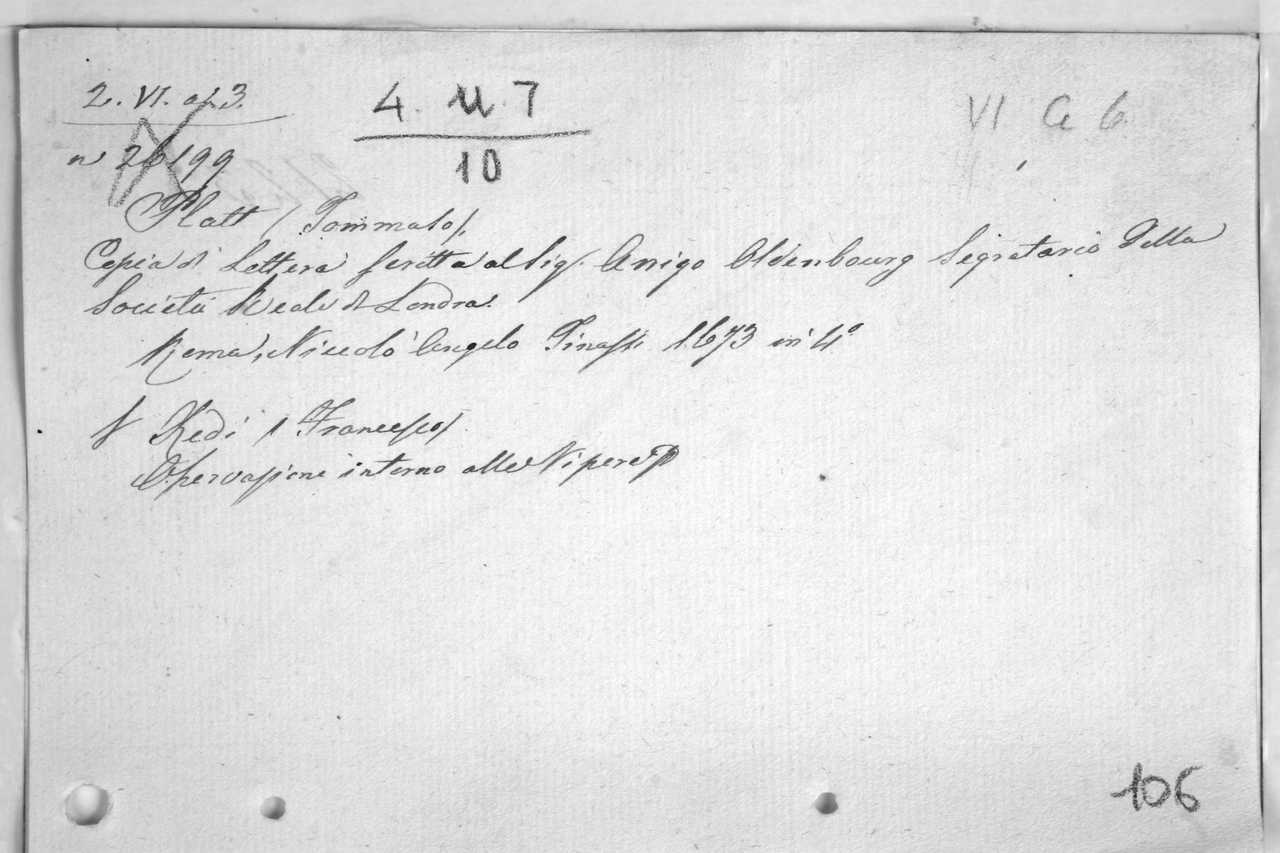 2. VI. 3.
4. M. 7
10
VI C 6
n 26199
Platt (Tommaso).
Copia di Lettera scritta al Sig. Arrigo Oldenbourg Segretario della
Società Reale di Londra.
Roma, Niccolò Angelo Tinassi, 1673 in 4°
f Redi (Francesco)
Osservazioni intorno alle Vipere
106